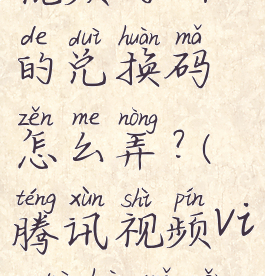 de duì huàn mǎ
的兑换码
zěn me nòng
怎么弄？(
téng xùn shì pín
腾讯视频Vi